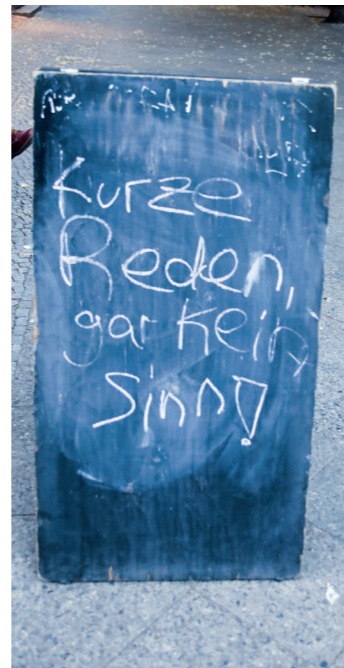 Kurze
Reden,
gar kein
Sinn!